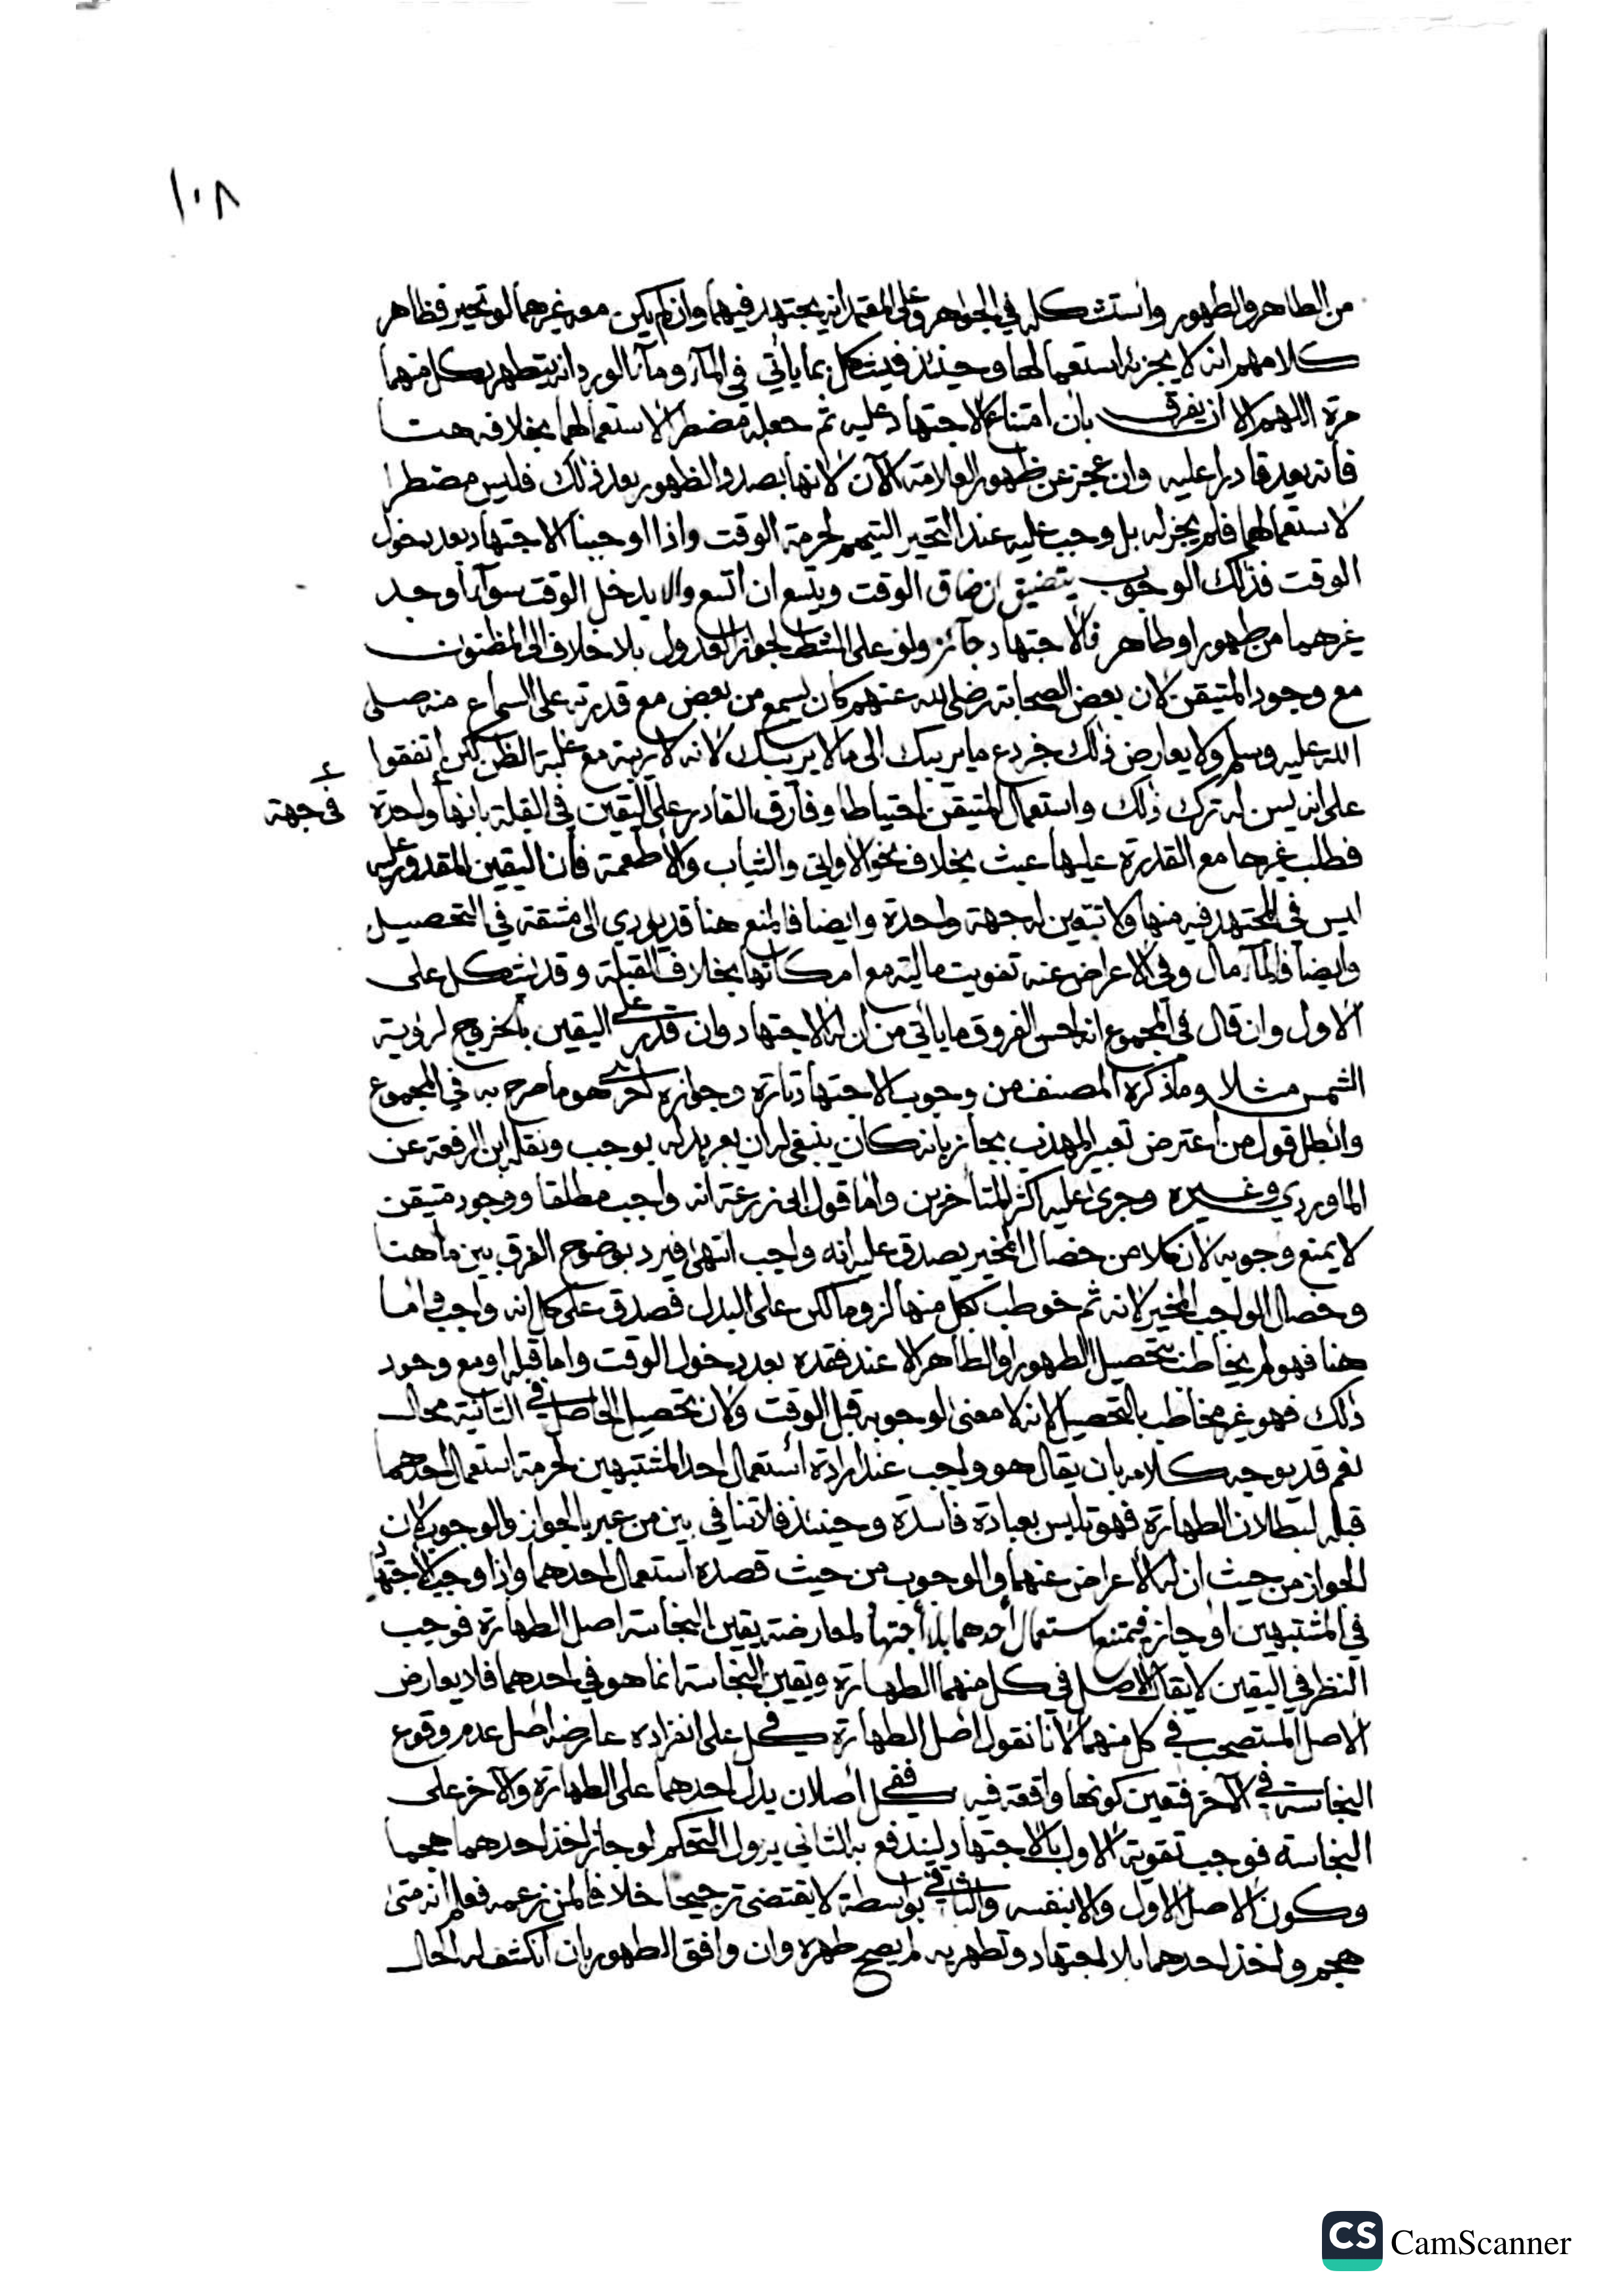 ١٠٨
من الطاهر والطهور واستشكله في الجواهر وعلى المعتمد انه يجتهد فيهما وان لم يكن معه غيرهما لو تحير فظاهر
كلامهم انه لا يجزئه استعمالهما وحينئذ فيشكل بما يأتي في الماء وماء الورد انه يتطهر بكل منهما
مرة اللهم الا ان يفرق بان امتناع الاجتهاد عليه ثم جعله مضطرا لاستعمالهما بخلافه هنا
فانه يعد قادرا عليه وان عجز عن ظهور العلامة الآن لانها بصدد الظهور بعد ذلك فليس مضطرا
لاستعمالهما فلم يجز له بل وجب عليه عند التحير التيمم لحرمة الوقت واذا اوجبنا الاجتهاد بعد دخول
الوقت فذلك الوجوب يتضيق ان ضاق الوقت ويتسع ان اتسع والا يدخل الوقت سواء أوجد
غيرهما من طهور او طاهر فالاجتهاد جائز ولو على الشط لجواز العدول بلا خلاف الى المظنون
مع وجود المتيقن لان بعض الصحابة رضي الله عنهم كان يسمع من بعض مع قدرته على السماع منه صلى
الله عليه وسلم ولا يعارض ذلك خبر دع ما يريبك الى ما لا يريبك لانه لا ريبة مع غلبة الظن لكن اتفقوا
على انه يسن له ترك ذلك واستعمال المتيقن احتياطا وفارق القادر على اليقين في القبلة بانها واحدة
في جهة
فطلب غيرها مع القدرة عليها عبث بخلاف نحو الاواني والثياب والاطعمة فان اليقين المقدور عليه
ليس في المجتهد فيه منها ولا تتعين له جهة واحدة وايضا فالمنع هنا قد يؤدي الى مشقة في التحصيل
وايضا فالماء مال وفي الاعراض عنه تفويت مالية مع امكانها بخلاف القبلة وقد يشكل على
الاول وان قال في المجموع انه احسن الفروق ما يأتي من ان له الاجتهاد وان قدر على اليقين بالخروج لرؤية
الشمس مثلا وما ذكره المصنف من وجوب الاجتهاد تارة وجوازه اخرى هو ما صرح به في المجموع
وابطل قول من اعترض تعبير المهذب بجائز بانه كان ينبغي له ان يعبر بدله بوجب ونقله ابن الرفعة عن
الماوردي وغيره وجرى عليه اكثر المتأخرين واما قول ابي زرعة انه واجب مطلقا ووجود متيقن
لا يمنع وجوبه لان كلا من خصال المخير يصدق عليه انه واجب انتهى فيرد بوضوح الفرق بين ما هنا
وخصال الواجب المخير لانه ثم خوطب بكل منها لزوما لكن على البدل فصدق على كل انه واجب واما
هنا فهو لم يخاطب بتحصيل الطهور او الطاهر الا عند فقده بعد دخول الوقت واما قبله او مع وجود
ذلك فهو غير مخاطب بالتحصيل لانه لا معنى لوجوبه قبل الوقت ولان تحصيل الحاصل في الثانية محال
نعم قد يوجه كلامه بان يقال هو واجب عند ارادة استعمال احد المشتبهين لحرمة استعمال احدهما
قبله لبطلان الطهارة فهو تلبس بعبادة فاسدة وحينئذ فلا تنافي بين من عبر بالجواز والوجوب لان
الجواز من حيث ان له الاعراض عنهما والوجوب من حيث قصده استعمال احدهما واذا وجب الاجتهاد
في المشتبهين او جاز فيمتنع استعمال أحدهما بلا أجتهاد لمعارضة يقين النجاسة اصل الطهارة فوجب
النظر في اليقين لا يقال الاصل في كل منهما الطهارة ويقين النجاسة انما هو في احدهما فلا يعارض
الاصل المستصحب في كل منهما لانا نقول اصل الطهارة في كل على انفراده عارضه اصل عدم وقوع
النجاسة في الآخر فتعين كونها واقعة فيه ففي كل أصلان يدل احدهما على الطهارة والآخر على
النجاسة فوجب تقوية الاول بالاجتهاد ليندفع به الثاني يزول التحكم لو جاز اخذ احدهما هجما
وكون الاصل الاول والا بنفسه والثاني بواسطة لا يقتضي ترجيحا خلافا لمن زعمه فعلم انه متى
هجم واخذ احدهما بلا اجتهاد وتطهر به لم يصح طهره وان وافق الطهور بان انكشف له الحال
CS CamScanner